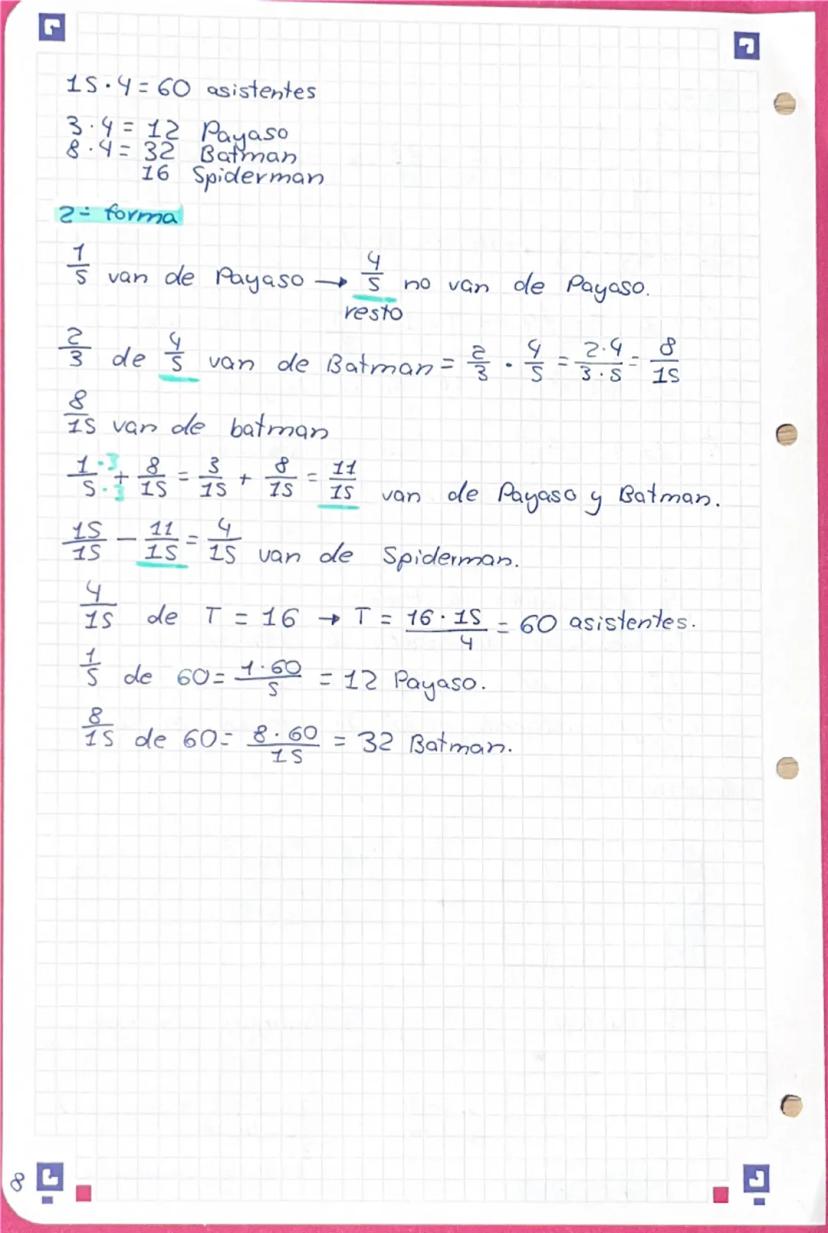 15·4=60 asistentes
3·4= 12 Payaso
8·4= 32 Batman
16 Spiderman
2ª forma
1/5 van de Payaso → 4/5 no van de Payaso.
resto
2/3 de 4/5 van de Batman = 2/3 · 4/5 = 2·4/3·5 = 8/15
8/15 van de batman
1·3/5·3 + 8/15 = 3/15 + 8/15 = 11/15 van de Payaso y Batman.
15/15 - 11/15 = 4/15 van de Spiderman.
4/15 de T = 16 → T = 16·15/4 = 60 asistentes.
1/5 de 60 = 1·60/5 = 12 Payaso.
8/15 de 60 = 8·60/15 = 32 Batman.
8